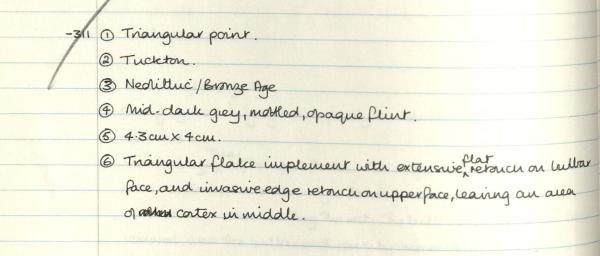 -311 ① Triangular point.
② Tuckton.
③ Neolithic/Bronze Age
④ Mid-dark grey, mottled, opaque flint.
⑤ 4.3cm x 4cm.
⑥ Triangular flake implement with extensive flat retouch on bulbar
face, and invasive edge retouch on upper face, leaving an area
of cortex in middle.